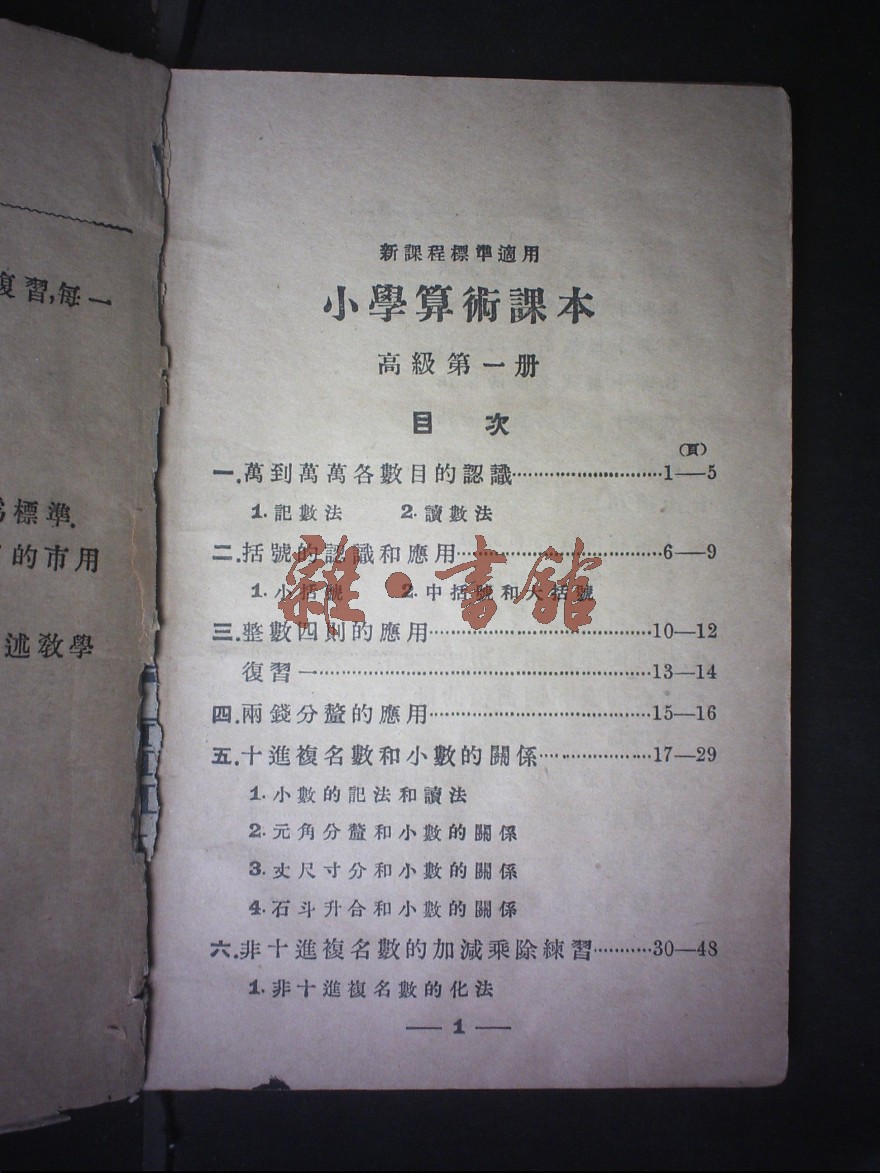 復習,每一
標準.
的市用
述教學
新課程標準適用
小學算術課本
高級第一册
目 次
(頁)
一.萬到萬萬各數目的認識……………………1—5
1.記數法 2.讀數法
二.括號的認識和應用……………………6—9
1.小括號 2.中括號和大括號
三.整數四則的應用……………………10—12
復習一……………………13—14
四.兩錢分釐的應用……………………15—16
五.十進複名數和小數的關係……………………17—29
1.小數的記法和讀法
2.元角分釐和小數的關係
3.丈尺寸分和小數的關係
4.石斗升合和小數的關係
六.非十進複名數的加減乘除練習…………30—48
1.非十進複名數的化法
— 1 —
雜·書館